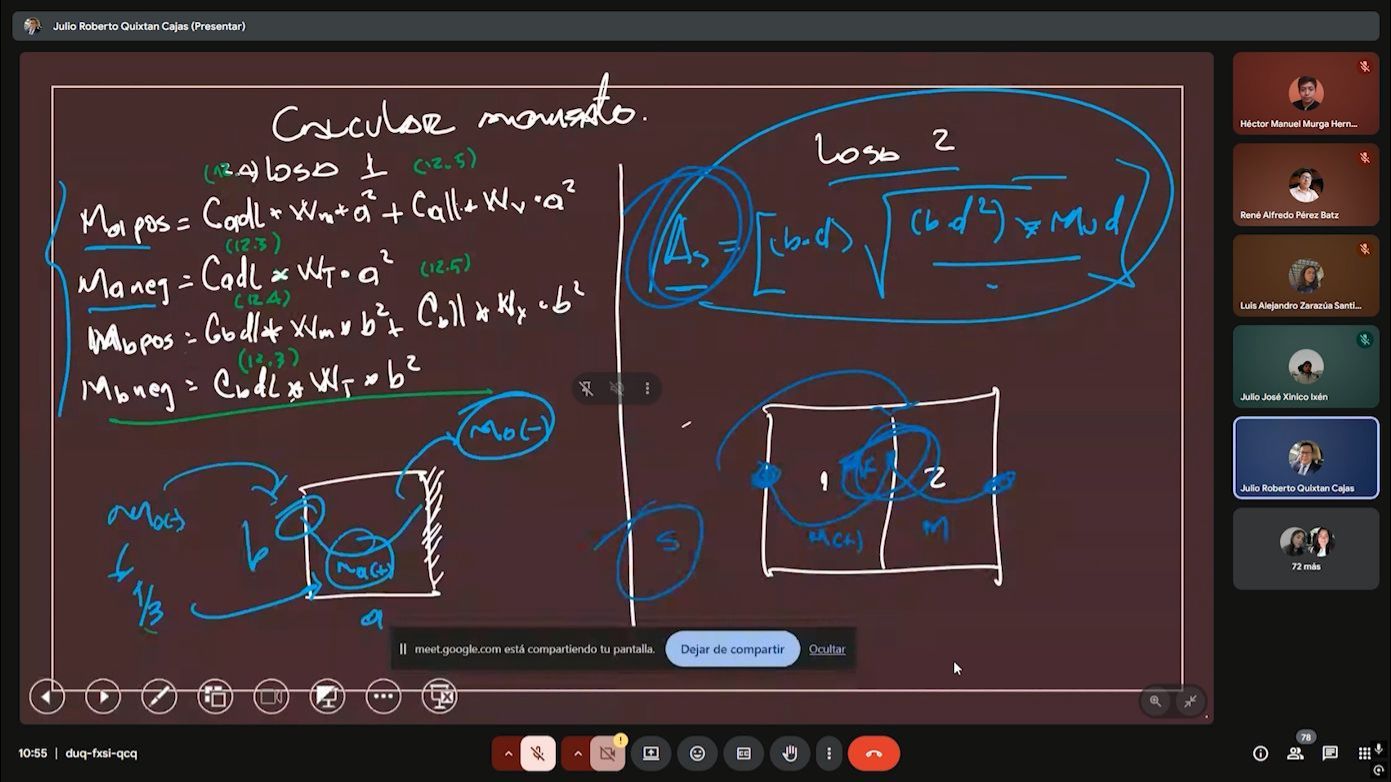 Julio Roberto Quixtan Cajas (Presentar)
Calcular momento.
(12.4) losa 1 (12.5)
Ma pos = Cadl * Wm * a² + Call * Wv · a²
(12.3)
Ma neg = Cadl * WT · a² (12.5)
(12.4)
Mb pos = Cbdl * Wm * b² + Cbll * Wv · b²
(12.3)
Mb neg = CbdL * WT * b²
Losa 2
As = [(b·d) √(b·d²) * Mu d]
Ma(-)
b
1/3
Ma(+)
a
Ma(-)
S
1
2
M(+)
M
Héctor Manuel Murga Hern...
René Alfredo Pérez Batz
Luis Alejandro Zarazúa Santi...
Julio José Xinico Ixén
Julio Roberto Quixtan Cajas
72 más
meet.google.com está compartiendo tu pantalla.
Dejar de compartir
Ocultar
10:55 | duq-fxsi-qcq
78